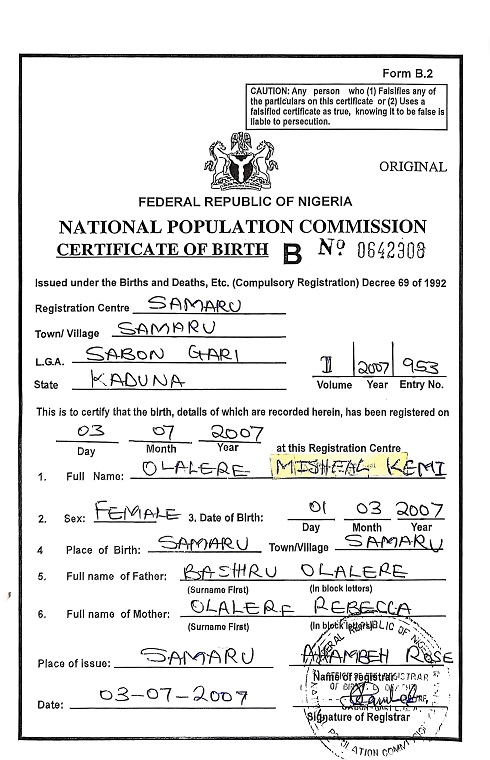 Form B.2
CAUTION: Any person who (1) Falsifies any of
the particulars on this certificate or (2) Uses a
falsified certificate as true, knowing it to be false is
liable to persecution.
ORIGINAL
FEDERAL REPUBLIC OF NIGERIA
NATIONAL POPULATION COMMISSION
CERTIFICATE OF BIRTH B Nº 0642308
Issued under the Births and Deaths, Etc. (Compulsory Registration) Decree 69 of 1992
Registration Centre SAMARU
Town/ Village SAMARU
L.G.A. SABON GARI
State KADUNA
I 2007 953
Volume Year Entry No.
This is to certify that the birth, details of which are recorded herein, has been registered on
03 07 2007
Day Month Year at this Registration Centre
1. Full Name: OLALERE MISHEAL KEMI
2. Sex: FEMALE 3. Date of Birth: 01 03 2007
Day Month Year
4 Place of Birth: SAMARU Town/Village SAMARU
5. Full name of Father: BASHRU OLALERE
(Surname First) (In block letters)
6. Full name of Mother: OLALERE REBECCA
(Surname First) (In block letters)
Place of issue: SAMARU Rose
Name of registrar
Date: 03-07-2007
Signature of Registrar